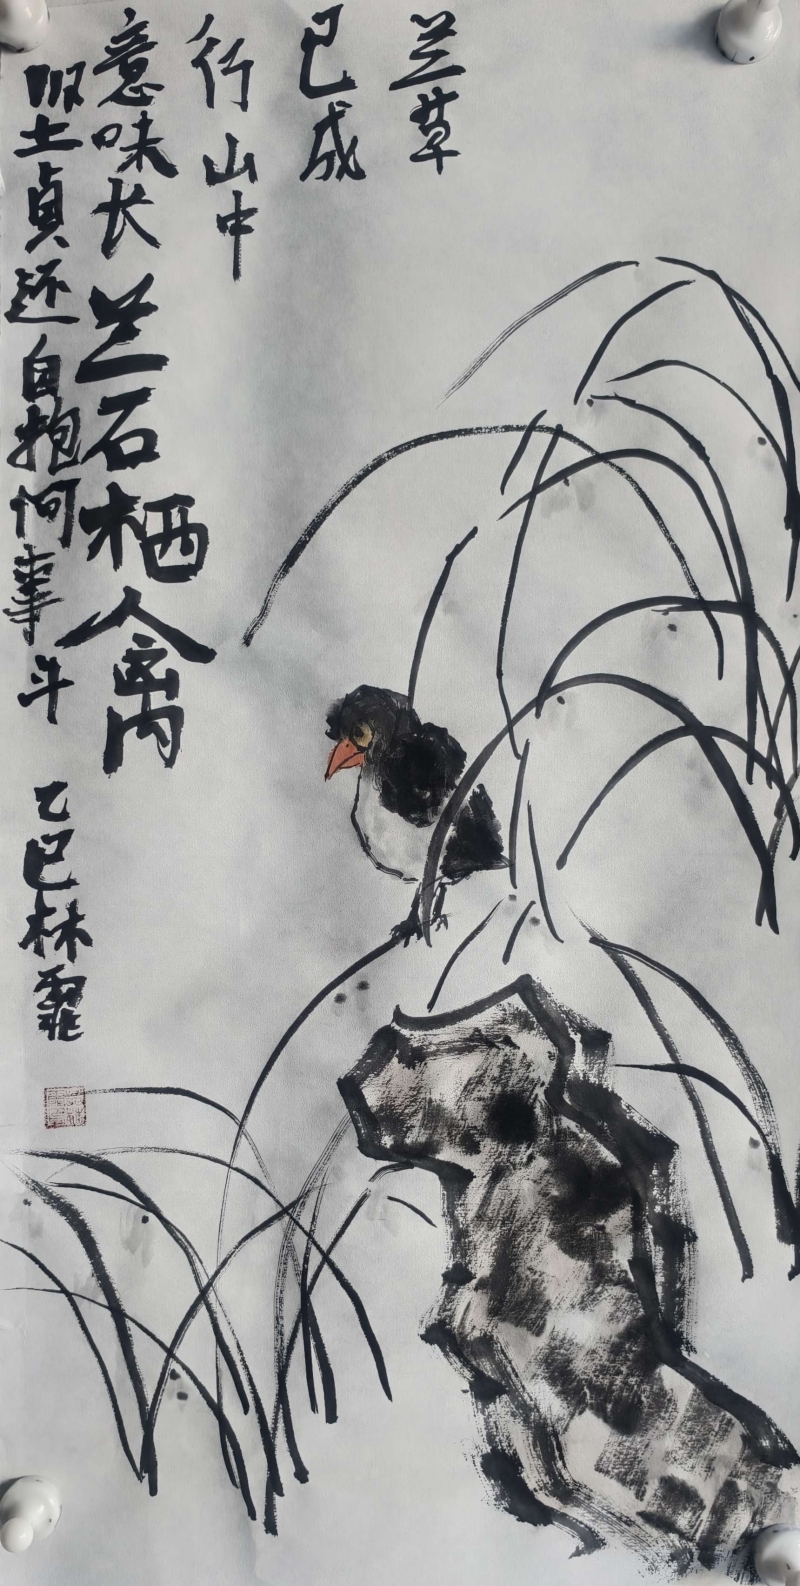 兰草
已成
行山中
意味长
兰石栖禽
坚貞还自抱何事斗
乙巳林霏